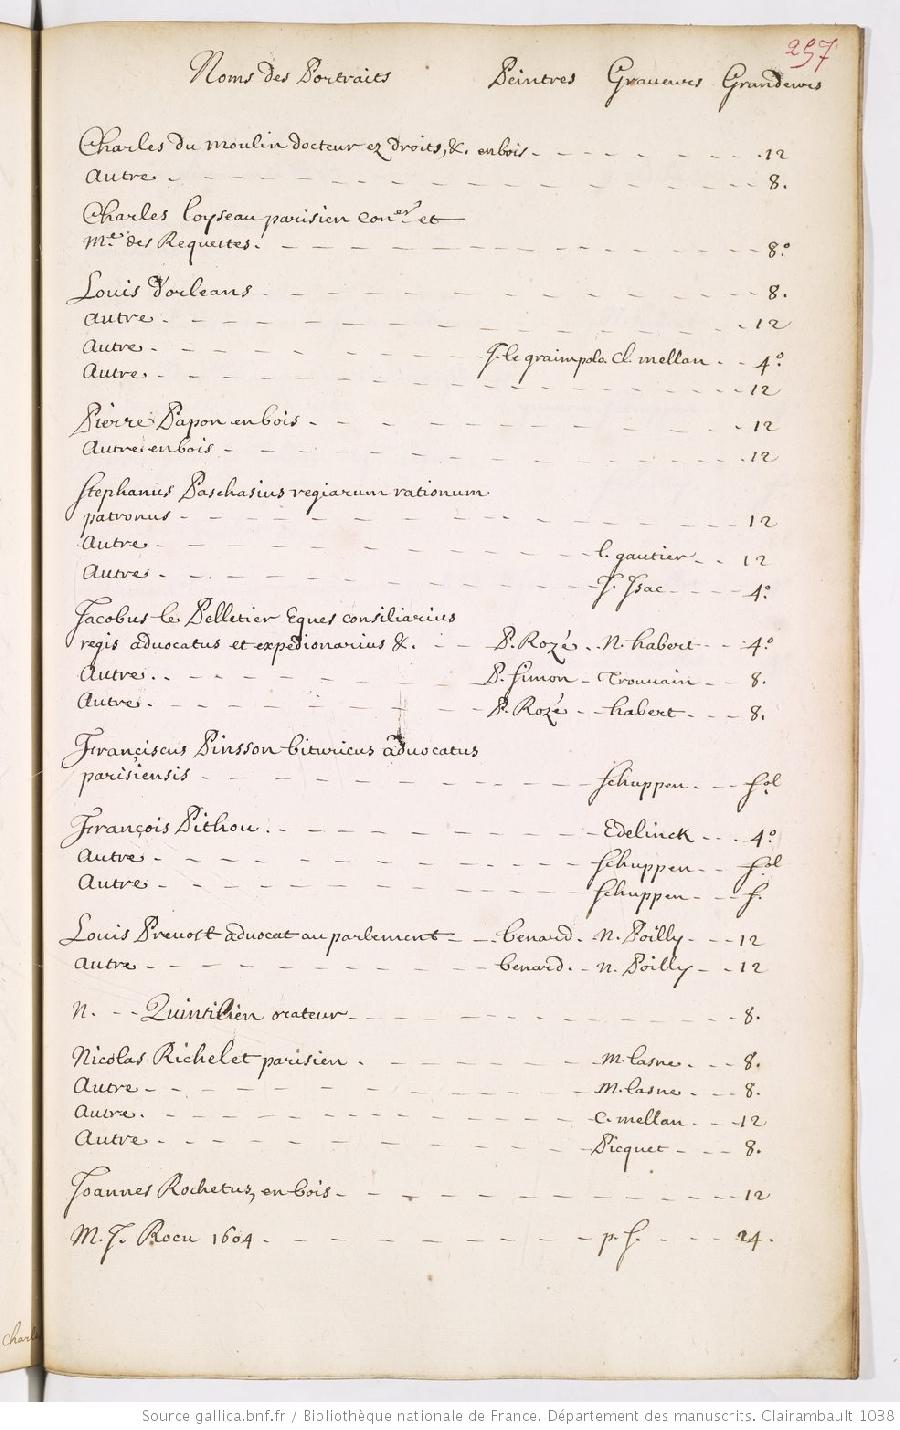 257
Noms des Portraits Peintres Graueurs Grandeurs
Charles du moulin docteur ez droits, &. en bois - 12
autre - 8.
Charles loyseau parisien con.er et
M.e des Requestes. - 8.o
Louis d'orleans - 8.
autre - 12
autre - J. le grain polo. Cl. mellan - 4.o
autre - 12
Pierre Papon en bois - 12
autre en bois - 12
Stephanus Paschasius regiarum rationum
patronus - 12
autre - l. gautier - 12
autre - J. Isac - 4.o
Jacobus le Pelletier Eques consiliarius
regis aduocatus et expedionarius &. - P. Rozé - N. habert - 4.o
autre - P. simon - Trouuain - 8.
autre - P. Rozé - habert - 8.
Franciscus Pinsson bituricus aduocatus
parisiensis - schuppen - fol
François Pithou - Edelinck - 4.o
autre - schuppen - fol
autre - schuppen - f.
Louis Preuost aduocat au parlement - benard - N. Poilly - 12
autre - benard - n. Poilly - 12
N. - Quintilien orateur - 8.
Nicolas Richelet parisien - M. lasne - 8.
autre - M. lasne - 8.
autre - C. mellan - 12
autre - Picquet - 8.
Joannes Rochetus, en bois - 12
M. J. Rocu 1604 - p. f. - 24.
charle
Source gallica.bnf.fr / Bibliothèque nationale de France. Département des manuscrits. Clairambault 1038